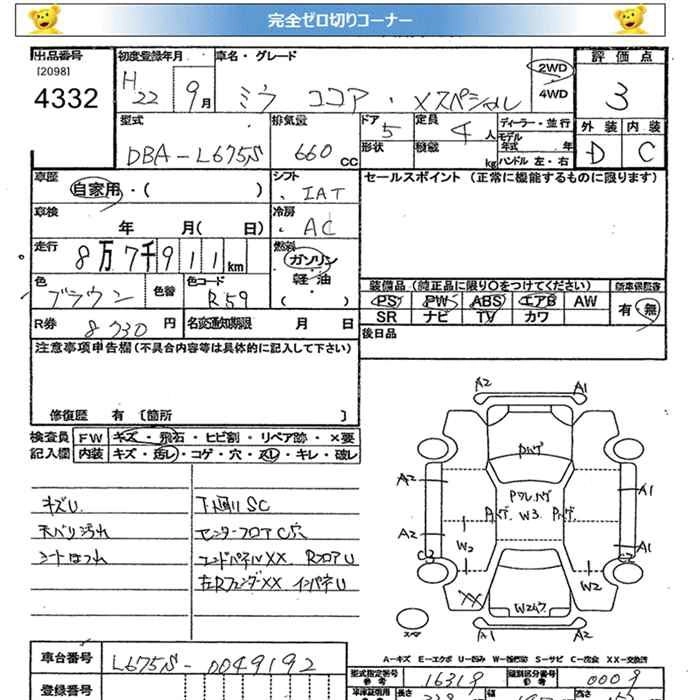 完全ゼロ切りコーナー
出品番号 初度登録年月 車名・グレード 評価点
[2098]
4332
H22 9月 ミラ ココア・Xスペシャル 2WD 4WD 3
型式 DBA-L675S 排気量 660cc
ドア 5 定員 4人 ディーラー・並行
形状 積載 kg モデル年式 年
ハンドル 左・右
外装 D 内装 C
車歴 自家用・( ) シフト IAT
セールスポイント(正常に機能するものに限ります)
車検 年 月( 日) 冷房 AC
走行 8万7千911km 燃料 ガソリン 軽油 ( )
色 ブラウン 色替 色コード R59
装備品(純正品に限り○をつけてください)
PS PW ABS エアB AW
SR ナビ TV カワ
有・無
R券 8730円 名変通知期限 月 日
後日品
注意事項申告欄(不具合内容等は具体的に記入して下さい)
修復歴 有 [箇所 ]
検査員 FW キズ・飛石・ヒビ割・リペア跡・×要
記入欄 内装 キズ・汚レ・コゲ・穴・スレ・キレ・破レ
キズU 下廻りSC
天バリ汚れ センターフロアC穴
シートほつれ エンドパネルXX RフロアU
右RフェンダーXX インパネU
A2 A1
A2 A1
A2 A1
W2 W3 W2
XX
A1 A2
A-キズ E-エクボ U-凹み W-補修跡 S-サビ C-腐食 XX-交換済
車台番号 L675S-0049192
型式指定番号 16319 類別区分番号 0009
登録番号 長さ 幅 高さ